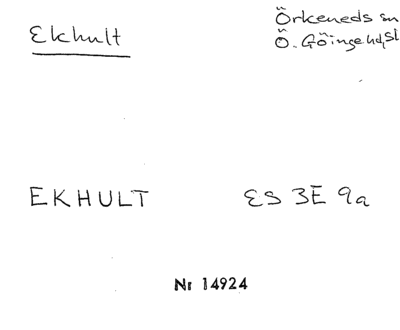 Ekhult
Örkeneds sn
Ö. Göinge hd, Sk
EKHULT ES 3E 9a
Nr 14924